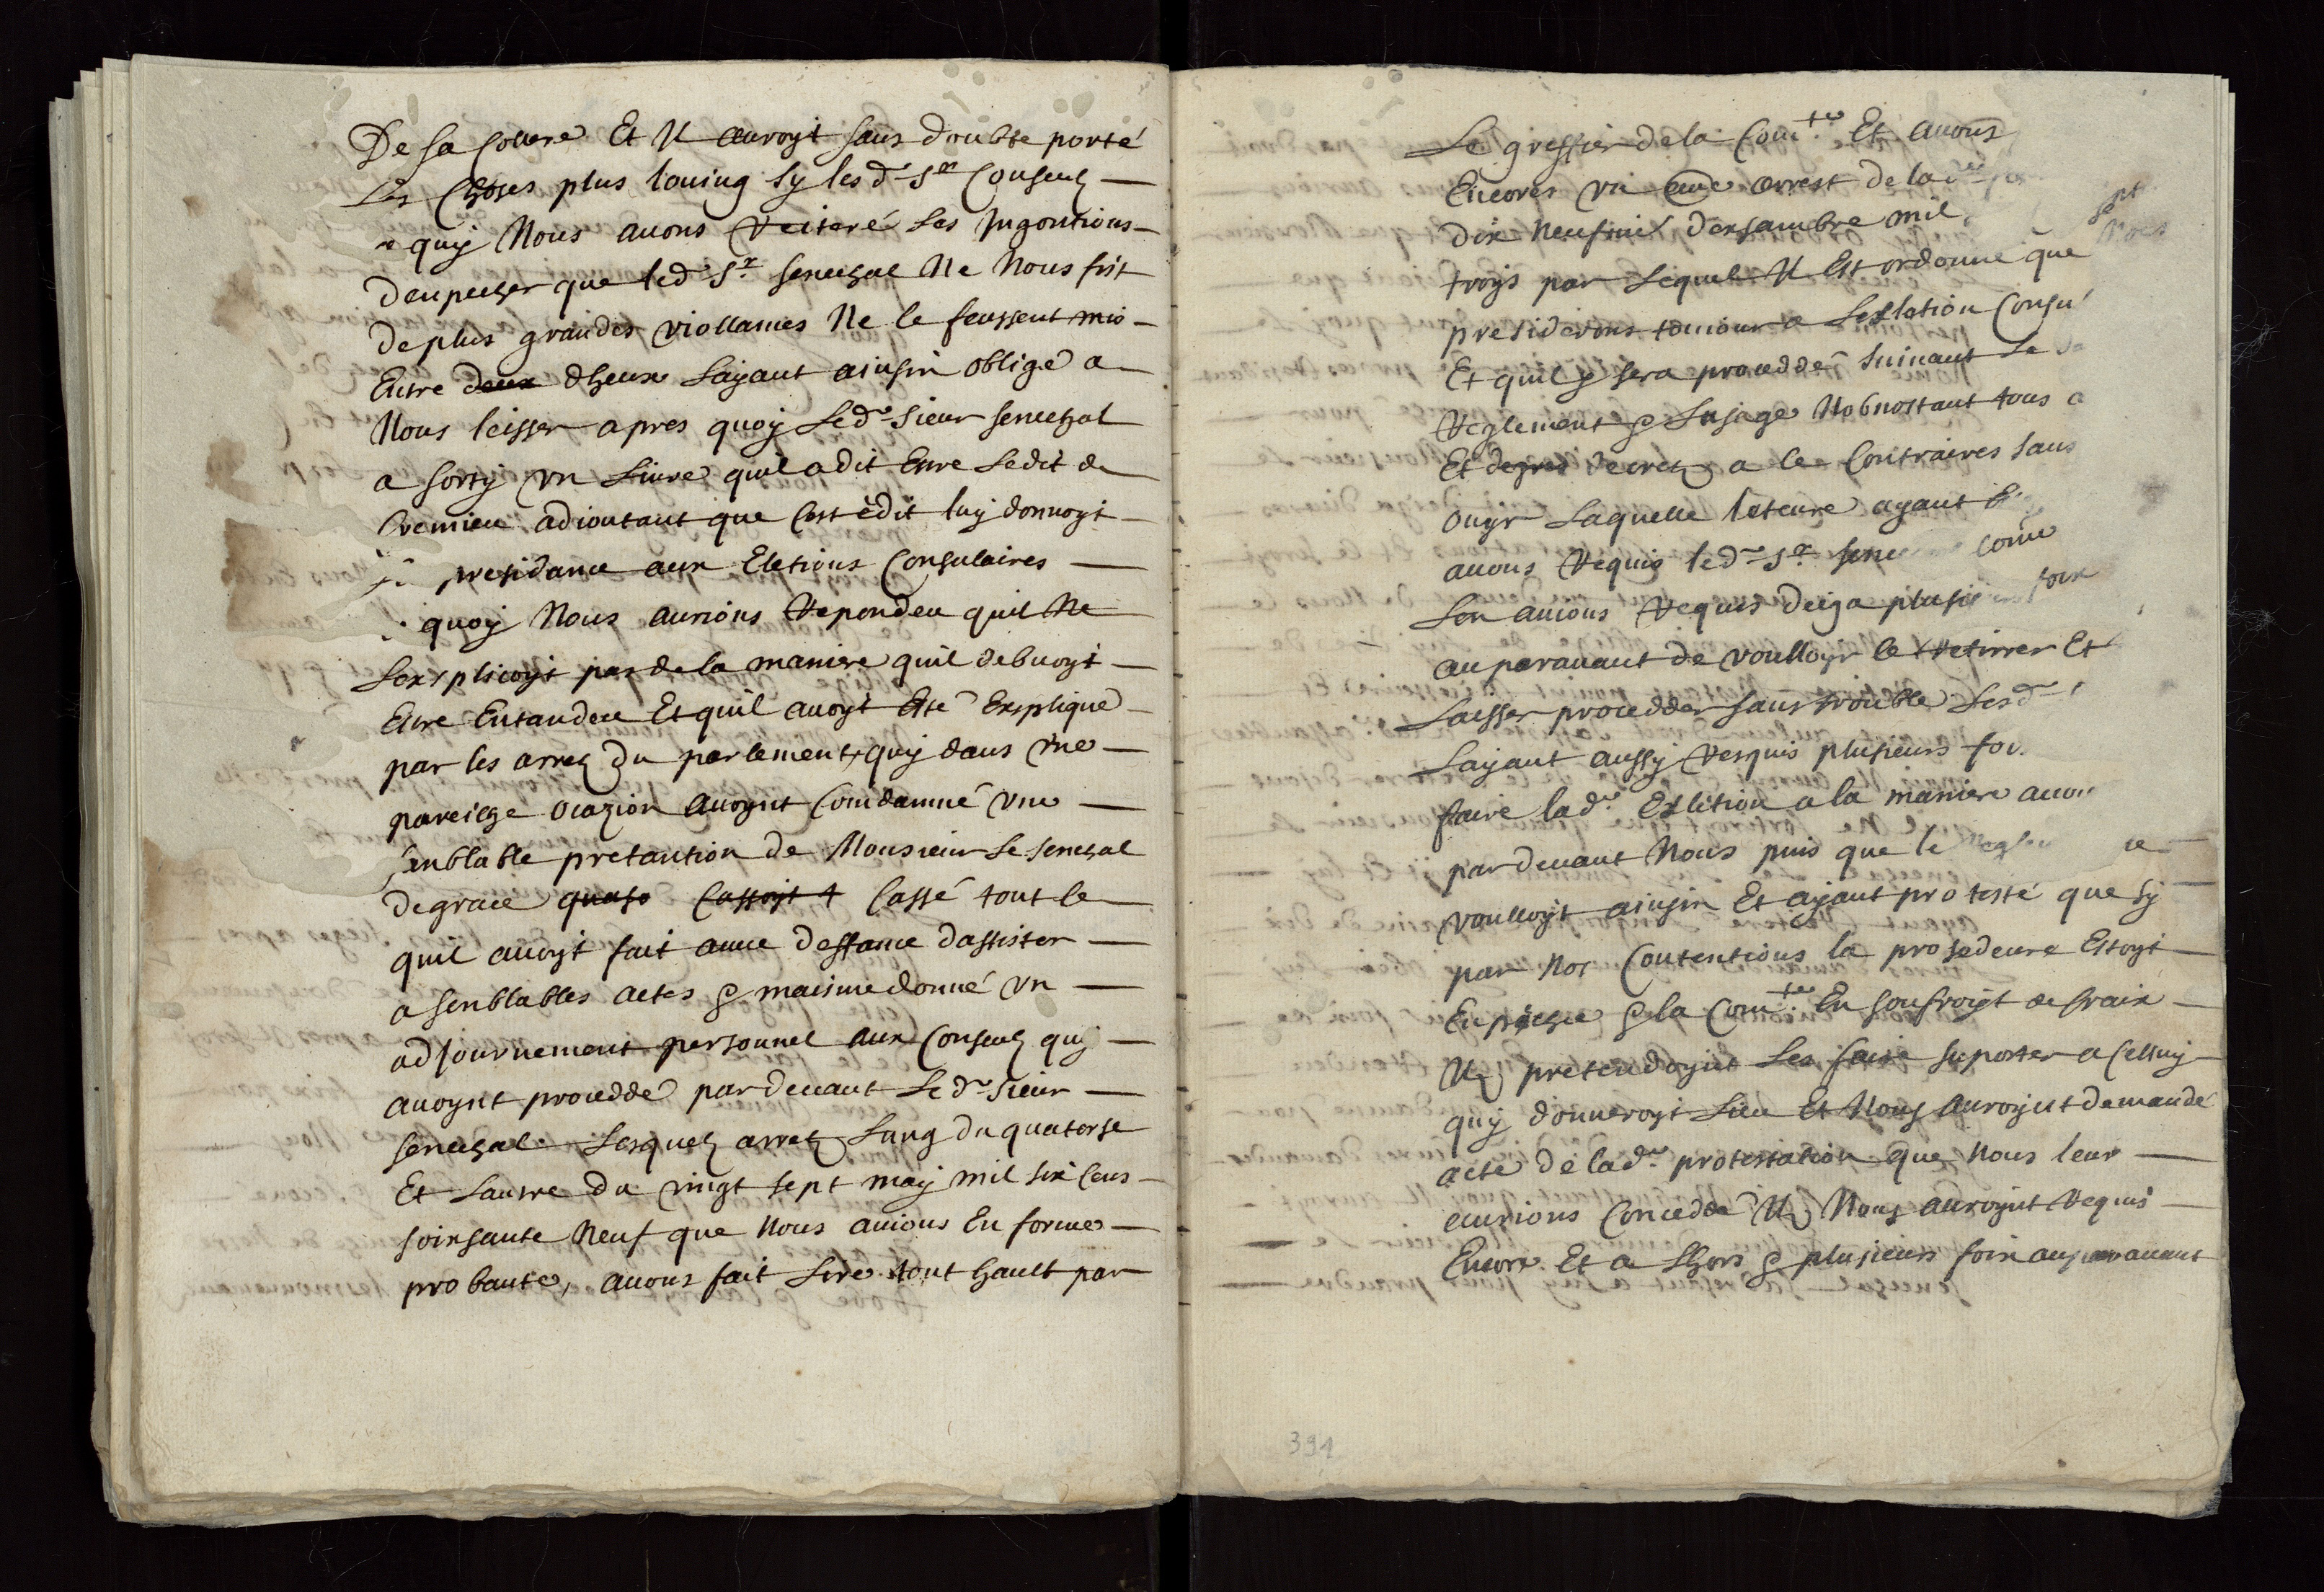 De sa collere Et Il auroyt sans doubte porté
Les Choses plus louing sy lesd srs Conseulz
quy Nous auons Reiteré Les Ingontions
denpecher que led sr senechal Ne Nous fist
de plus grandes viollances Ne se feussent mis
Entre deux dheux Layant ainsin obligé a
Nous leisser apres quoy Led sieur senechal
a sorty vn Liure quil a dit Estre Ledit de
Cremieu adioutant que Cest édit luy donnoyt
presidance aux Eletions Consulaires
quoy Nous aurions Repondeu quil Ne
Lexsplicoyt pas de la maniere quil debuoyt
Etre Entandeu Et quil auoyt Eté Exsplique
par les arretz du parlement, quy dans vne
pareilhe ocazion auoynt Comdamné vne
senblable pretantion de Monsieur Le senechal
de graice Cassoyt t Cassé tout ce
quil auoyt fait auec deffance dassister
a senblables actes & maisme donné vn
adjournement personnel aux Conseulz quy
auoynt procedde par deuant Led sieur
senechal Lesquelz arretz Lung du quatorse
Et Lautre du vingt sept may mil six Cens
soixsante Neuf que Nous auions En forme
probante, auons fait Lire tout hault par
Le greffier de la Comte Et auons
Encores vn arrest de lad
dix Neufuie dexsambre mil sept
troys par Lequel Il Est ordonne que Nous
presiderons toujours a Leslation Consu
Et quil y sera procedde suiuant Le
Reglement & Lusage Nobnostant tous a
Et degres decretz a ce Contraires sans
ouyr Laquelle leteure ayant
auons Requis led sr sene come
Lon auions Requis deija plusieurs foix
auparauant de voulloyr ce Retirrer Et
Laisser procedder sans trouble Lesd
Layant aussy Requis plusieurs foi
faire lad Eslition a la maniere
par deuant Nous puis que le
voulloyt ainsin Et ayant protesté que sy
par Nos Contentions la prosedeure Estoyt
Enpeche & la Comte En soufroyt de fraix
Ilz pretendoynt Les faire suporter a Celluy
quy donneroyt Lieu Et Nous auroynt demandé
acte de lad protestation que Nous leur
aurions Concedde Ilz Nous auroynt Requis
Encore Et a Lhors & plusieurs foix auparauant
391